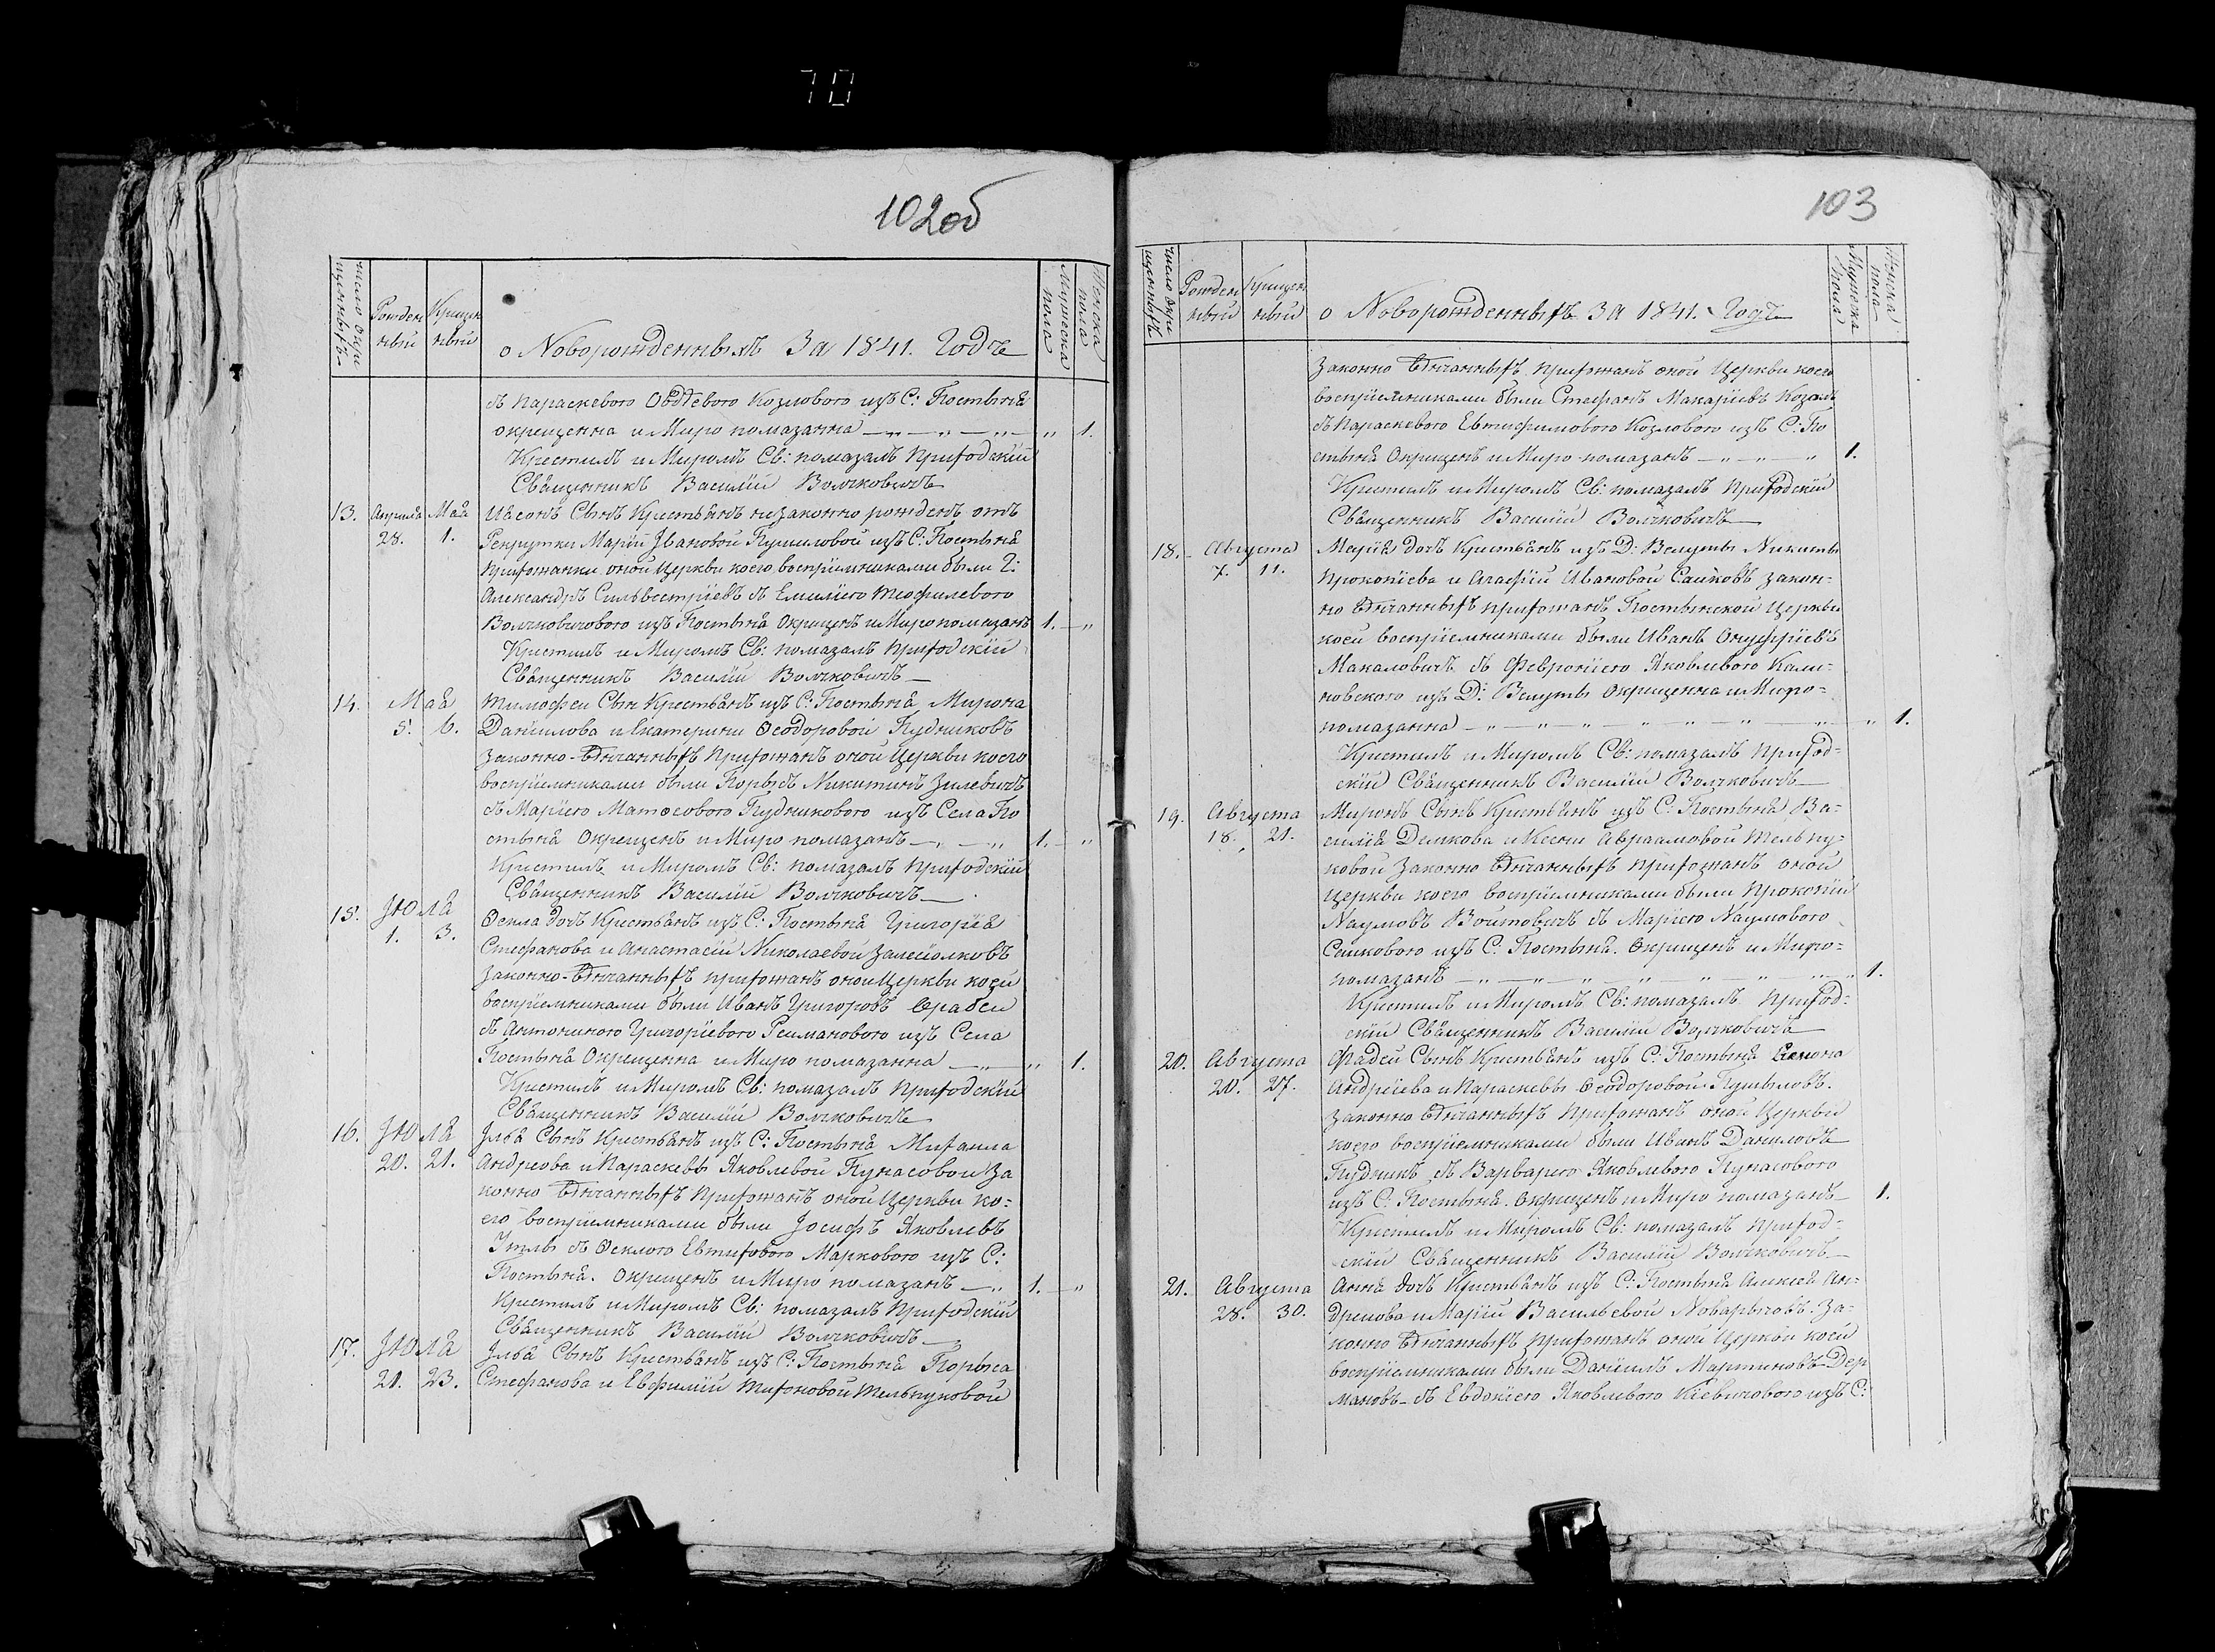 70
102об
число окрещенныхъ
Рожденный
Крещенный
о Новорожденныхъ За 1841. Годъ
Мужеска пола
Женска пола
съ Параскевою Овдѣевою Козловою изъ С: Гостыня
окрещенна и Миро помазанна — „ — „ — „ — „ 1.
Крестилъ и Миромъ Св: помазалъ Приходскій
Священникъ Василій Волчковичъ
13. Апрѣля Мая Иасонъ Сынъ Крестьянъ незаконно рожденъ отъ
28. 1. Рекрутки Маріи Івановой из С: Гостыня
Прихожанки оной Церкви коего воспріемниками были Г:
Александръ Сильвестріевъ съ Емиліею Теофилевою
Волчковичовою изъ Гостыня Окрещенъ и Миро помазанъ 1. — „
Крестилъ и Миромъ Св: помазалъ Приходскій
Священникъ Василій Волчковичъ —
14. Мая Тимофеи Сын Крестьянъ изъ С: Гостыня, Мирона
5. 6. Даніилова и Екатерины Ѳеодоровой Гудниковъ
Законно-Вѣнчанныхъ Прихожанъ оной Церкви коего
воспріемниками были Борысъ Никитинъ Зилевичъ
съ Маріею Матѳеовою Гудниковою изъ Села Го
стыня Окрещенъ и Миро помазанъ — „ — „ 1. — „
Крестилъ и Миромъ Св: помазалъ Приходскій
Священникъ Василій Волчковичъ —
15. Іюля Ѳекла дочь Крестьянъ изъ С: Гостыня Григорія
1. 3. Стефанова и Анастасіи Николаевой
Законно-Вѣнчанныхъ прихожанъ оной Церкви коей
воспріемниками были Иванъ Григоровъ
съ Антониною Григоріевою Реимановою изъ Села
Гостыня Окрещенна и Миро помазанна — „ — „ 1.
Крестилъ и Миромъ Св: помазалъ Приходскій
Священникъ Василій Волчковичъ
16. Іюля Ілья Сынъ Крестьянъ изъ С: Гостыня Михаила
20. 21. Андреова и Параскевы Яковлевой Пунасовой За
конно Вѣнчанныхъ Прихожанъ оной Церкви ко=
его воспріемниками были Іосифъ Яковлевъ
съ Ѳеклою Евтиховою Марковою изъ С:
Гостыня. Окрещенъ и Миро помазанъ — „ 1. — „
Крестилъ и Миромъ Св: помазалъ Приходскій
Священникъ Василій Волчковичъ —
17. Іюля Ілья Сынъ Крестьянъ изъ С: Гостыня Борыса
21. 23. Стефанова и Евфиміи Тихоновой Мельнуковой
103
число окрещенныхъ
Рожденный
Крещенный
о Новорожденныхъ За 1841. Годъ
Мужеска пола
Женска пола
Законно Вѣнчанныхъ Прихожанъ оной Церкви коего
воспріемниками были Стефанъ Макаріевъ Козелъ
съ Параскевою Евтифимовою Козловою изъ С: Го
стыня Окрещенъ и Миро помазанъ — „ — „ — „ 1.
Крестилъ и Миромъ Св: помазалъ Приходскій
Священникъ Василій Волчковичъ —
18. Августа Марія дочь Крестьянъ изъ Д: Велуты Никиты
7. 11. Прокопіева и Агафіи Ивановой Саиковъ закон-
но Вѣнчанныхъ прихожанъ Гостынской Церкви
коей воспріемниками были Иванъ Онуфріевъ
Макаловичъ съ Февроніею Яковлевою Кали-
новскою изъ Д: Велуты Окрещенна и Миро=
помазанна — „ — „ — „ — „ — „ — „ 1.
Крестилъ и Миромъ Св: помазалъ Приход-
скій Священникъ Василій Волчковичъ —
19. Августа Миронъ Сынъ Крестьянъ изъ С: Гостыня Ва=
18. 21. силія Демкова и Ксени Авраамовой Мельну-
ковой Законно Вѣнчанныхъ Прихожанъ оной
Церкви коего воспріемниками были Прокопій
Наумовъ Воитовичъ съ Маріею Наумовою
Сенковою изъ С: Гостыня. Окрещенъ и Миро=
помазанъ — „ — „ — „ — „ — „ — „ 1.
Крестилъ и Миромъ Св: помазалъ Приход=
скій Священникъ Василій Волчковичъ
20. Августа Фадей Сынъ Крестьянъ изъ С: Гостыня
20. 27. Андреіева и Параскевы Ѳеодоровой
Законно Вѣнчанныхъ Прихожанъ оной Церкви
коего воспріемниками были Иванъ Даниловъ
Гудникъ съ Варварею Яковлевою Пунасовою
изъ С: Гостыня. Окрещенъ и Миро помазанъ — 1.
Крестилъ и Миромъ Св: помазалъ Приход=
скій Священникъ Василій Волчковичъ —
21. Августа Анна дочь Крестьянъ изъ С: Гостыня Алексея Ан=
28. 30. дреиова и Маріи Васильевой За-
конно Вѣнчанныхъ Прихожанъ оной Церкви коей
воспріемниками были Даніилъ Мартиновъ Дер
мановъ съ Евдокіею Яковлевою Кіевичовою изъ С: